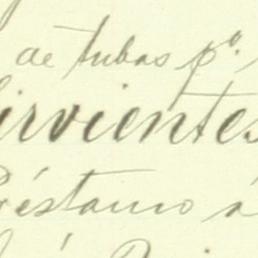 de tubos pº
irvientes
Préstamo á